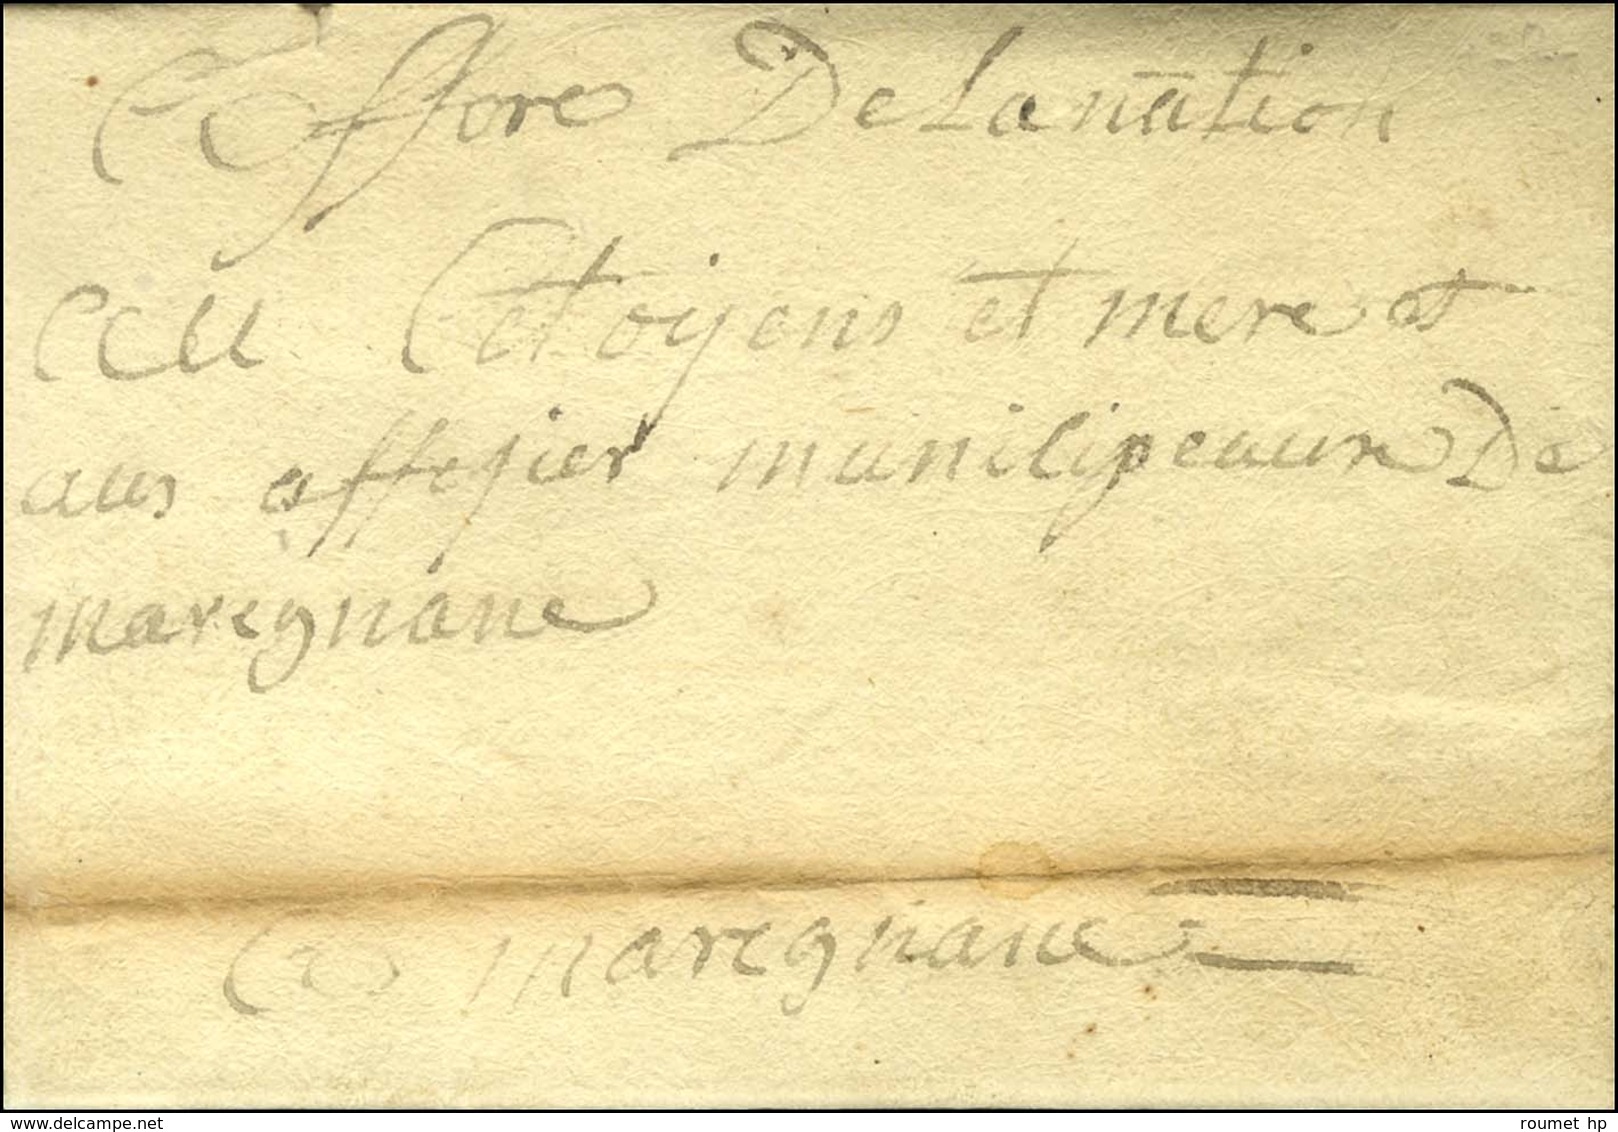 affore De La nātion
au Citoyens et mere et
aus affesier municipeaure De
maregnane
a maregnane
www.delcampe.net
roumet hp